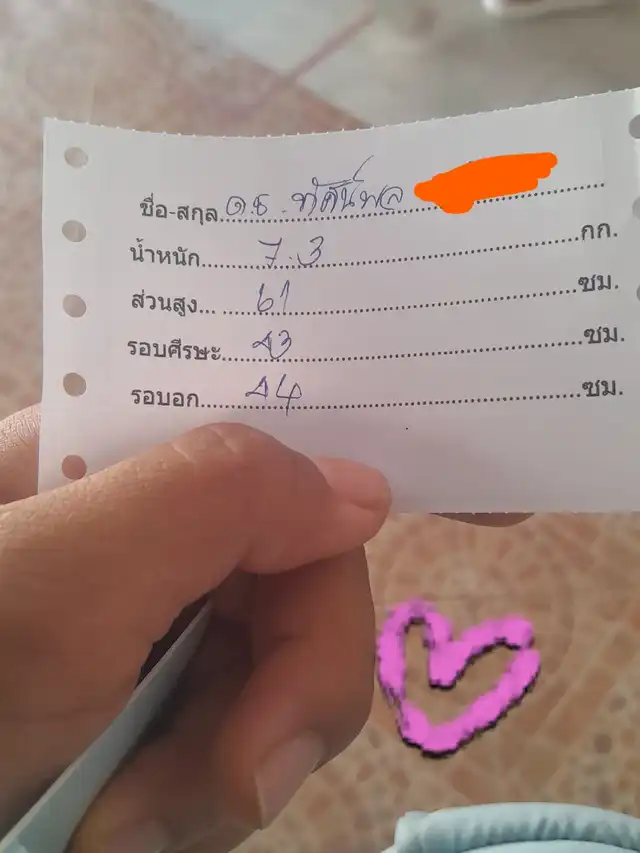 ชื่อ-สกุล ด.ช. ทัศน์พล
น้ำหนัก 7.3 กก.
ส่วนสูง 61 ซม.
รอบศีรษะ 43 ซม.
รอบอก 44 ซม.